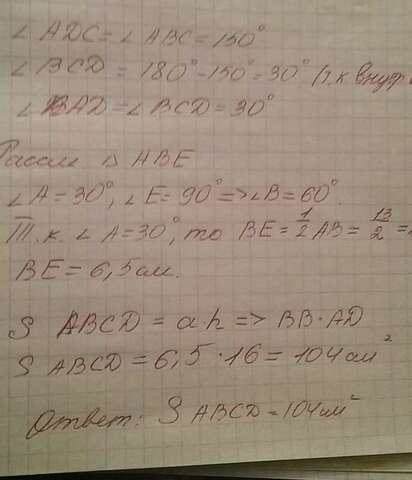 ∠ ADC = ∠ ABC = 150°
∠ BCD = 180° - 150° = 30° /т.к внут
∠ BAD = ∠ BCD = 30°
Рассм △ ABE
∠ A = 30°, ∠ E = 90° => ∠ B = 60°.
Т.к. ∠ A = 30°, то BE = 1/2 AB = 13/2 =
BE = 6,5 см.
S ABCD = ah => BB · AD
S ABCD = 6,5 · 16 = 104 см²
Ответ: S ABCD = 104 см²